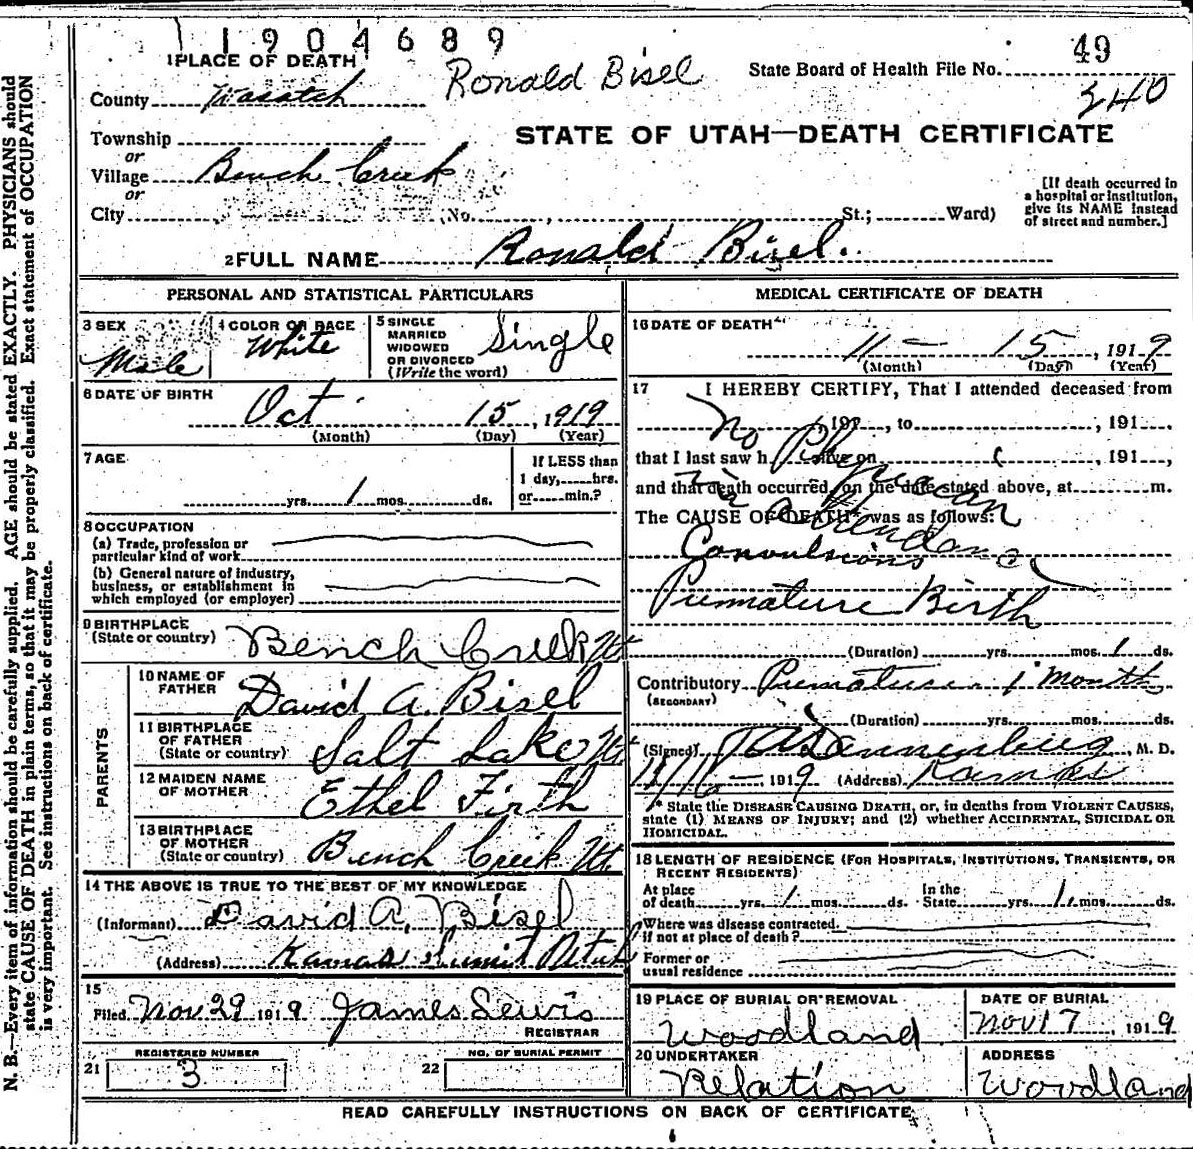 1904689
1 PLACE OF DEATH
Ronald Bisel
State Board of Health File No. 49
240
County Wasatch
STATE OF UTAH—DEATH CERTIFICATE
Township
or
Village Bench Creek
or
City No. St.; Ward)
[If death occurred in
a hospital or institution,
give its NAME instead
of street and number.]
2 FULL NAME Ronald Bisel.
PERSONAL AND STATISTICAL PARTICULARS
3 SEX
Male
4 COLOR OR RACE
White
5 SINGLE
MARRIED
WIDOWED
OR DIVORCED
(Write the word)
Single
6 DATE OF BIRTH
Oct 15, 1919
(Month) (Day) (Year)
7 AGE
yrs. 1 mos. ds.
If LESS than
1 day, hrs.
or min.?
8 OCCUPATION
(a) Trade, profession or
particular kind of work
(b) General nature of industry,
business, or establishment in
which employed (or employer)
9 BIRTHPLACE
(State or country) Bench Creek Ut
PARENTS
10 NAME OF
FATHER David A. Bisel
11 BIRTHPLACE
OF FATHER
(State or country) Salt Lake Ut
12 MAIDEN NAME
OF MOTHER Ethel Firth
13 BIRTHPLACE
OF MOTHER
(State or country) Bench Creek Ut
14 THE ABOVE IS TRUE TO THE BEST OF MY KNOWLEDGE
(Informant) David A. Bisel
(Address) Kamas Sumit Utah
15
Filed Nov 29 1919 James Lewis
REGISTRAR
21 REGISTERED NUMBER
3
22 NO. OF BURIAL PERMIT
MEDICAL CERTIFICATE OF DEATH
16 DATE OF DEATH
11 — 15, 1919
(Month) (Day) (Year)
17 I HEREBY CERTIFY, That I attended deceased from
, 191 , to , 191 ,
that I last saw h alive on , 191 ,
and that death occurred, on the date stated above, at m.
The CAUSE OF DEATH* was as follows:
No Physician
in attendance
Convulsions
Premature Birth
(Duration) yrs. mos. 1 ds.
Contributory Premature 1 month
(SECONDARY)
(Duration) yrs. mos. ds.
(Signed) Dannenberg, M. D.
11/16 — 1919 (Address) Kamas
* State the DISEASE CAUSING DEATH, or, in deaths from VIOLENT CAUSES,
state (1) MEANS OF INJURY; and (2) whether ACCIDENTAL, SUICIDAL OR
HOMICIDAL.
18 LENGTH OF RESIDENCE (FOR HOSPITALS, INSTITUTIONS, TRANSIENTS, OR
RECENT RESIDENTS)
At place
of death yrs. 1 mos. ds.
In the
State yrs. 1 mos. ds.
Where was disease contracted
if not at place of death?
Former or
usual residence
19 PLACE OF BURIAL OR REMOVAL
Woodland
DATE OF BURIAL
Nov 17, 1919
20 UNDERTAKER
Relation
ADDRESS
Woodland
READ CAREFULLY INSTRUCTIONS ON BACK OF CERTIFICATE
N. B.—Every item of information should be carefully supplied. AGE should be stated EXACTLY. PHYSICIANS should
state CAUSE OF DEATH in plain terms, so that it may be properly classified. Exact statement of OCCUPATION
is very important. See instructions on back of certificate.